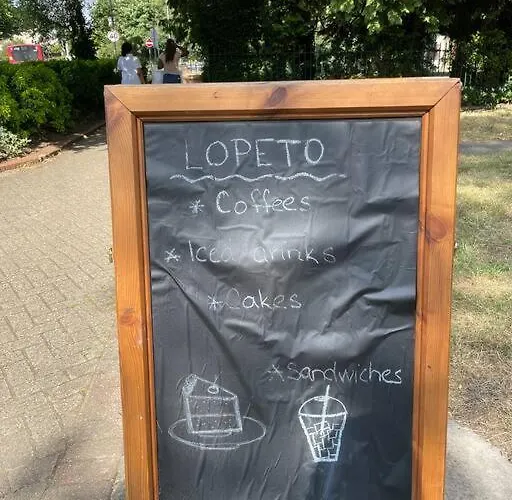 LOPETO
* Coffees
* Iced drinks
* Cakes
* Sandwiches